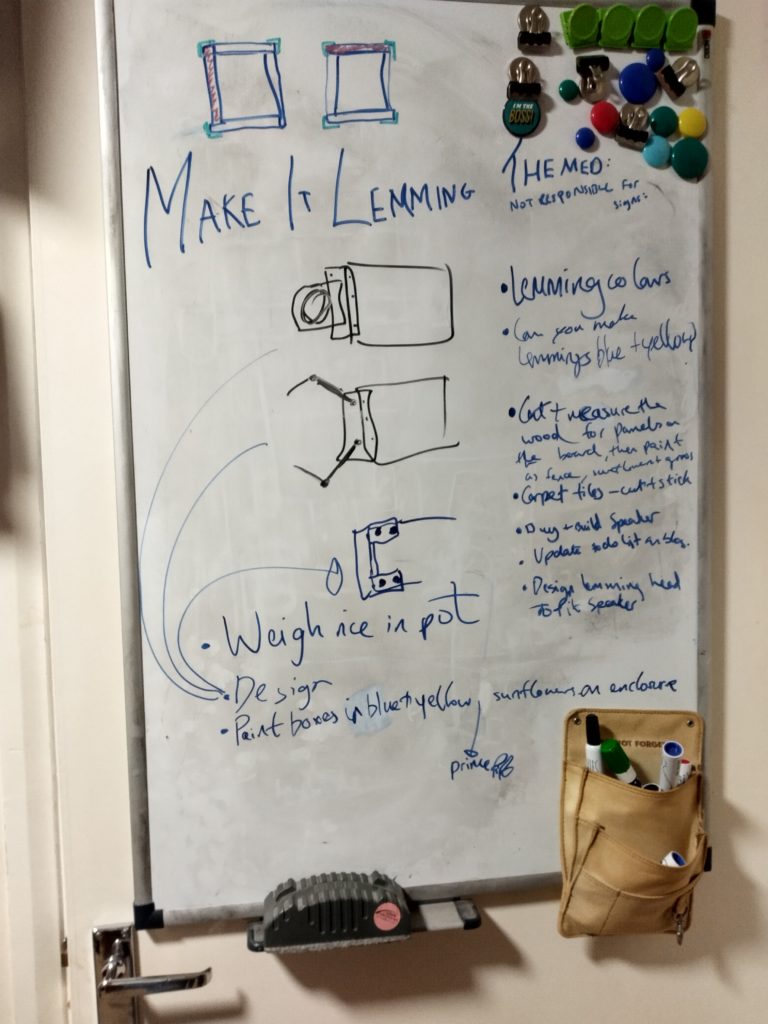 I'M THE
BOSS!
MAKE IT LEMMING
THEMED:
NOT RESPONSIBLE for
signs:
• Lemming colours
• Can you make
lemmings blue + yellow
• Cut + measure the
wood for panels on
the board, then paint
as fence, sunflower + grass
• Carpet tiles – cut + stick
• Buy + build speaker
• Update todo list on blog.
• Design lemming head
to fit speaker
• Weigh rice in pot
• Design
• Paint boxes in blue + yellow, sunflowers on enclosure
prime
NOT FORGET